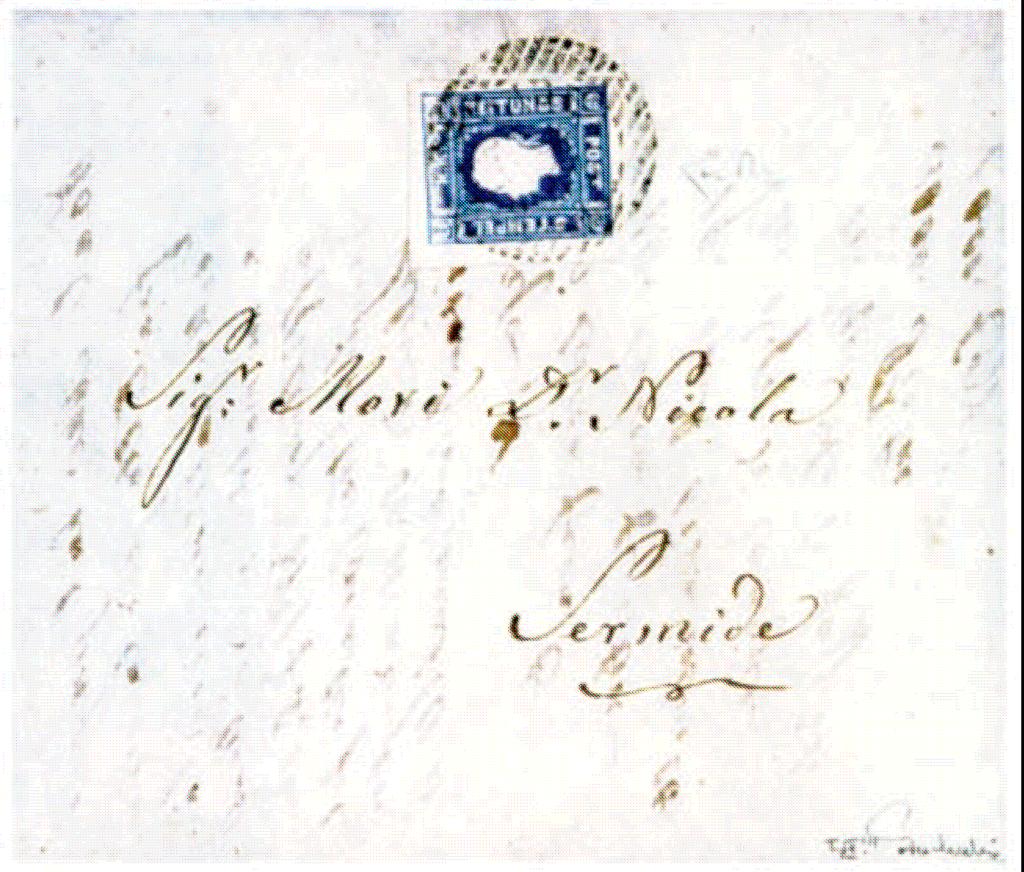 ZEITUNGS
K. K. POST
STEMPEL
Sig.r Mori D.r Nicola
Sermide